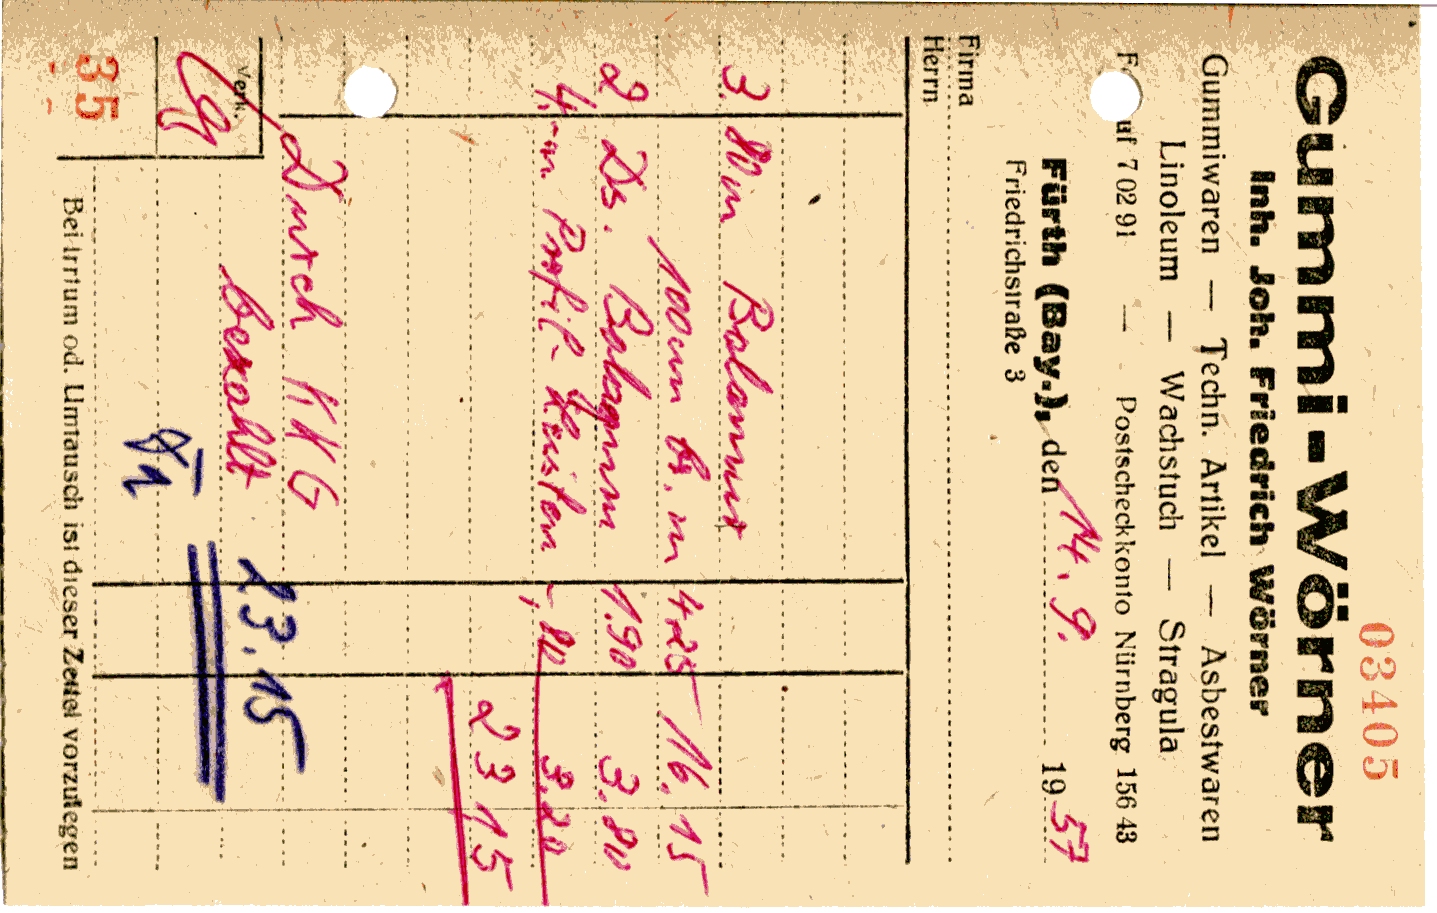 03405
Gummi-Wörner
Inh. Joh. Friedrich Wörner
Gummiwaren — Techn. Artikel — Asbestwaren
Linoleum — Wachstuch — Stragula
F uf 7 02 91 — Postscheckkonto Nürnberg 156 43
Fürth (Bay.), den 14. 9. 1957
Friedrichstraße 3
Firma
Herrn
3 80 m Balamut
100 cm br. m 4 25 16. 15
2 Ds. Balagum 1.90 3. 80
4,- m Profil-Leisten -, 80 3.20
23 15
Durch KKG
bezahlt 23.15
Verk.
35
Bei Irrtum od. Umtausch ist dieser Zettel vorzulegen